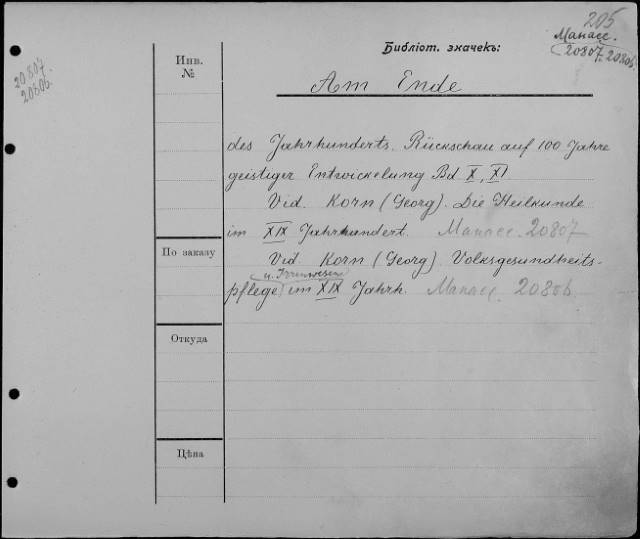 205
Манасс.
20807. 20806
20807
20806.
Инв.
№
Библіот. значекъ:
Am Ende
des Jahrhunderts. Rückschau auf 100 Jahre
geistiger Entwickelung Bd X, XI
Vid. Korn (Georg). Die Heilkunde
im XIX Jahrhundert. Манасс. 20807
По заказу
Vid. Korn (Georg). Volksgesundheits-
u. Irrenwesen
pflege im XIX Jahrh. Манасс. 20806.
Откуда
Цѣна